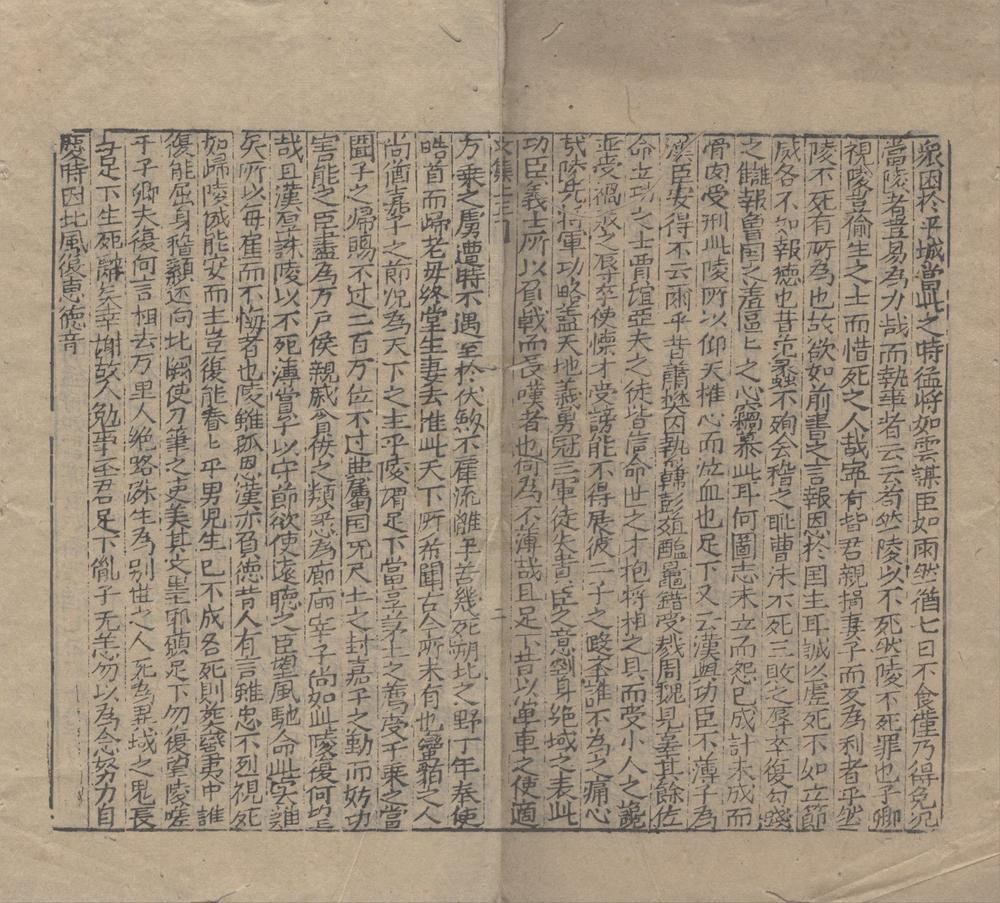 衆因扵平城當此之時猛將如雲謀臣如雨然猶七日不食僅乃得免况
當陵者豈易為力哉而執事者云云苟然陵以不死然陵不死罪也子卿
視陵豈偷生之士而惜死之人哉寧有背君親捐妻子而反為利者乎然
陵不死有所為也故欲如前書之言報恩扵国主耳誠以虗死不如立節
威各不如報徳也昔范蠡不殉会稽之耻曹沬不死三敗之辱卒復勾踐
之讎報魯国之羞區〻之心竊慕此耳何圖志未立而怨已成計未成而
骨肉受刑此陵所以仰天椎心而泣血也足下又云漢與功臣不薄子為
漢臣安得不云爾乎昔蕭樊囚執韓彭葅醢鼂錯受戮周魏見辜其餘佐
命立功之士賈誼亞夫之徒皆信命世之才抱將相之具而受小人之讒
並受禍敗之辱卒使懷才受謗能不得展彼二子之誰不為之痛心
哉陵先將軍功略盖天地義勇冠三軍徒失貴臣之意剄身绝域之表此
功臣義士所以負戟而長嘆者也何為不薄哉且足下昔以单車之使適
文集上三 二
万乗之虜遭時不遇至扵伏劒不顧流離辛苦幾死朔北之野丁年奉使
皓首而歸老毋終堂生妻去帷此天下所希聞古今所未有也蠻貊之人
尚猶嘉子之節况為天下之主乎陵謂足下當享茅土之薦受千乗之當
聞子之歸賜不过二百万位不过典屬国无尺土之封嘉子之勤而妨功
害能之臣盡為万户侯親戚貪佞之類悉為廊庙宰子尚如此陵復何望
哉且漢厚誅陵以不死薄賞子以守節欲使遠聴之臣望風馳命此实難
矣所以毋顧而不悔者也陵雖孤恩漢亦負徳昔人有言雖忠不烈視死
如歸陵誠能安而主豈復能眷〻乎男児生已不成各死則葬蠻夷中誰
復能屈身稽顙还向北闕使刀筆之吏美其文墨邪願足下勿復望陵嗟
乎子卿夫復何言相去万里人绝路殊生為别世之人死為異域之鬼長
与足下生死辭矣幸謝故人勉事圣君足下胤子无恙勿以為念努力自
愛時因北風復恵徳音